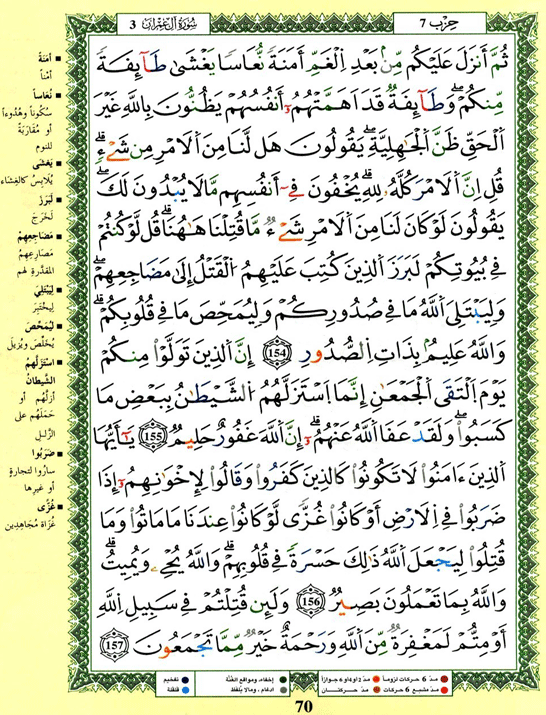 حِزْب 7
سُورَةُ آلِ عِمْرَان 3
ثُمَّ أَنزَلَ عَلَيْكُم مِّنۢ بَعْدِ اِ۬لْغَمِّ أَمَنَةٗ نُّعَاسٗا يَغْشَىٰ طَآئِفَةٗ
مِّنكُمْۖ وَطَآئِفَةٞ قَدَ اَهَمَّتْهُمُۥٓ أَنفُسُهُمْ يَظُنُّونَ بِاللَّهِ غَيْرَ
اَ۬لْحَقِّ ظَنَّ اَ۬لْجَٰهِلِيَّةِۖ يَقُولُونَ هَل لَّنَا مِنَ اَ۬لَامْرِ مِن شَےْءٖۗ
قُلِ اِنَّ اَ۬لَامْرَ كُلَّهُۥ لِلهِۗ يُخْفُونَ فِےٓ أَنفُسِهِم مَّا لَا يُبْدُونَ لَكَۖ
يَقُولُونَ لَوْ كَانَ لَنَا مِنَ اَ۬لَامْرِ شَےْءٞ مَّا قُتِلْنَا هَٰهُنَاۗ قُل لَّوْ كُنتُمْ
فِے بُيُوتِكُمْ لَبَرَزَ اَ۬لذِينَ كُتِبَ عَلَيْهِمُ اُ۬لْقَتْلُ إِلَىٰ مَضَاجِعِهِمْۖ
وَلِيَبْتَلِيَ اَ۬للَّهُ مَا فِے صُدُورِكُمْ وَلِيُمَحِّصَ مَا فِے قُلُوبِكُمْۗ
وَاللَّهُ عَلِيمُۢ بِذَاتِ اِ۬لصُّدُورِ 154 إِنَّ اَ۬لذِينَ تَوَلَّوْاْ مِنكُمْ
يَوْمَ اَ۬لْتَقَى اَ۬لْجَمْعَٰنِ إِنَّمَا اَ۪سْتَزَلَّهُمُ اُ۬لشَّيْطَٰنُ بِبَعْضِ مَا
كَسَبُواْۖ وَلَقَدْ عَفَا اَ۬للَّهُ عَنْهُمُۥٓۗ إِنَّ اَ۬للَّهَ غَفُورٌ حَلِيمٞ 155 يَٰٓأَيُّهَا
اَ۬لذِينَ ءَامَنُواْ لَا تَكُونُواْ كَالذِينَ كَفَرُواْ وَقَالُواْ لِإِخْوَٰنِهِمُۥٓ إِذَا
ضَرَبُواْ فِے اِ۬لَارْضِ أَوْ كَانُواْ غُزّٗى لَّوْ كَانُواْ عِندَنَا مَا مَاتُواْ وَمَا
قُتِلُواْ لِيَجْعَلَ اَ۬للَّهُ ذَٰلِكَ حَسْرَةٗ فِے قُلُوبِهِمْۗ وَاللَّهُ يُحْيِۦ وَيُمِيتُۗ
وَاللَّهُ بِمَا تَعْمَلُونَ بَصِيرٞ 156 وَلَئِن قُتِلْتُمْ فِے سَبِيلِ اِ۬للَّهِ
أَوْ مُتُّمْ لَمَغْفِرَةٞ مِّنَ اَ۬للَّهِ وَرَحْمَةٌ خَيْرٞ مِّمَّا تَجْمَعُونَ 157
أَمَنَةً
أَمْناً
نُعَاساً
سُكُوناً وهُدُوءاً
أو مُقَارَبَةً
للنوم
يَغْشَى
يُلابِسُ كالغِشَاء
لَبَرَزَ
لَخَرَجَ
مَضَاجِعِهِمْ
مَصَارِعِهِمُ
المقدَّرةِ لهم
لِيَبْتَلِيَ
لِيَخْتَبِرَ
لِيُمَحِّصَ
يُخَلِّصَ ويُزيلَ
اسْتَزَلَّهُمُ
الشَّيطَانُ
أزَلَّهُم أو
حَمَلَهُم على
الزَّلَلِ
ضَرَبُوا
سارُوا لتجارةٍ
أو غيرِها
غُزًّى
غُزَاةً مُجَاهِدِين
مدّ 6 حركات لزوماً
مدّ 2 أو 4 أو 6 جوازاً
إخفاء، ومواقع الغُنَّة
تفخيم
مدّ مشبع 6 حركات
مدّ حركتــان
ادغام، وما لا يُلفظ
قلقلة
70